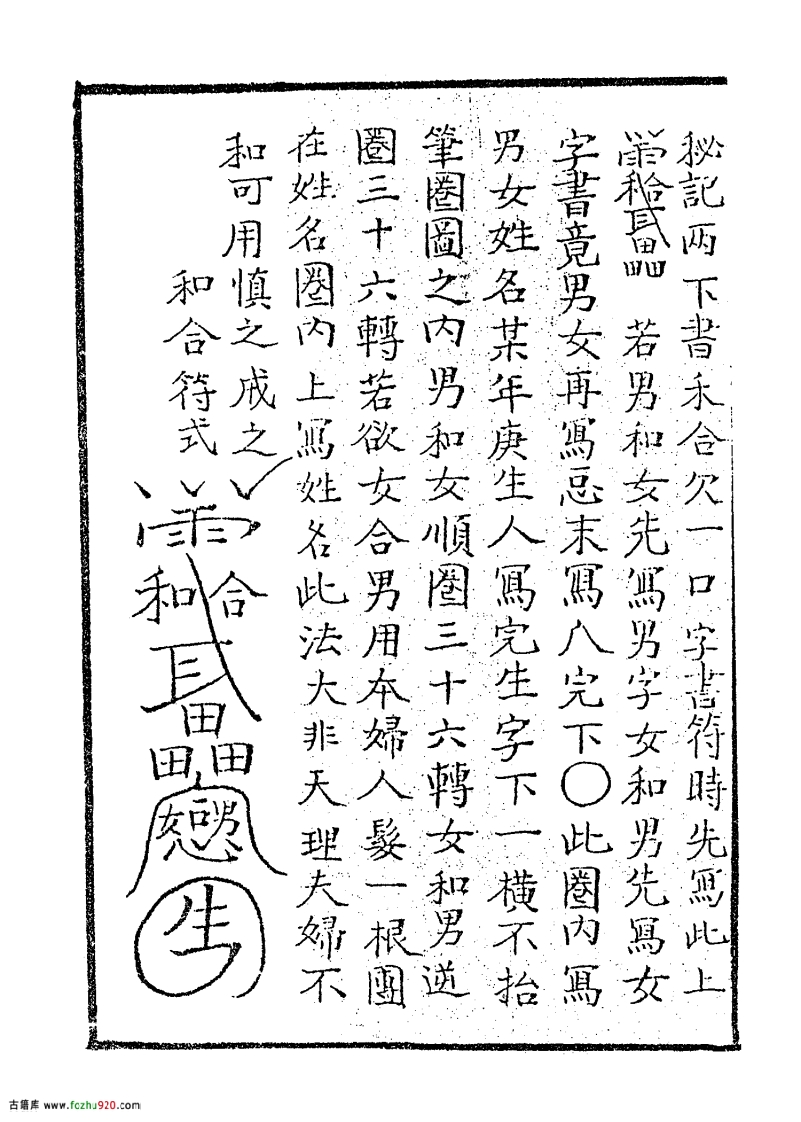 秘記兩下書禾合欠一口字書符時先寫此上
若男和女先寫男字女和男先寫女
字書竟男女再寫忌末寫八完下〇此圈内寫
男女姓名某年庚生人寫完生字下一橫不抬
筆圈圖之内男和女順圈三十六轉女和男逆
圈三十六轉若欲女合男用本婦人髮一根團
在姓名圈内上寫姓名此法大非天理夫婦不
和可用慎之戒之
和合符式
和合
生
古籍库 www.fozhu920.com